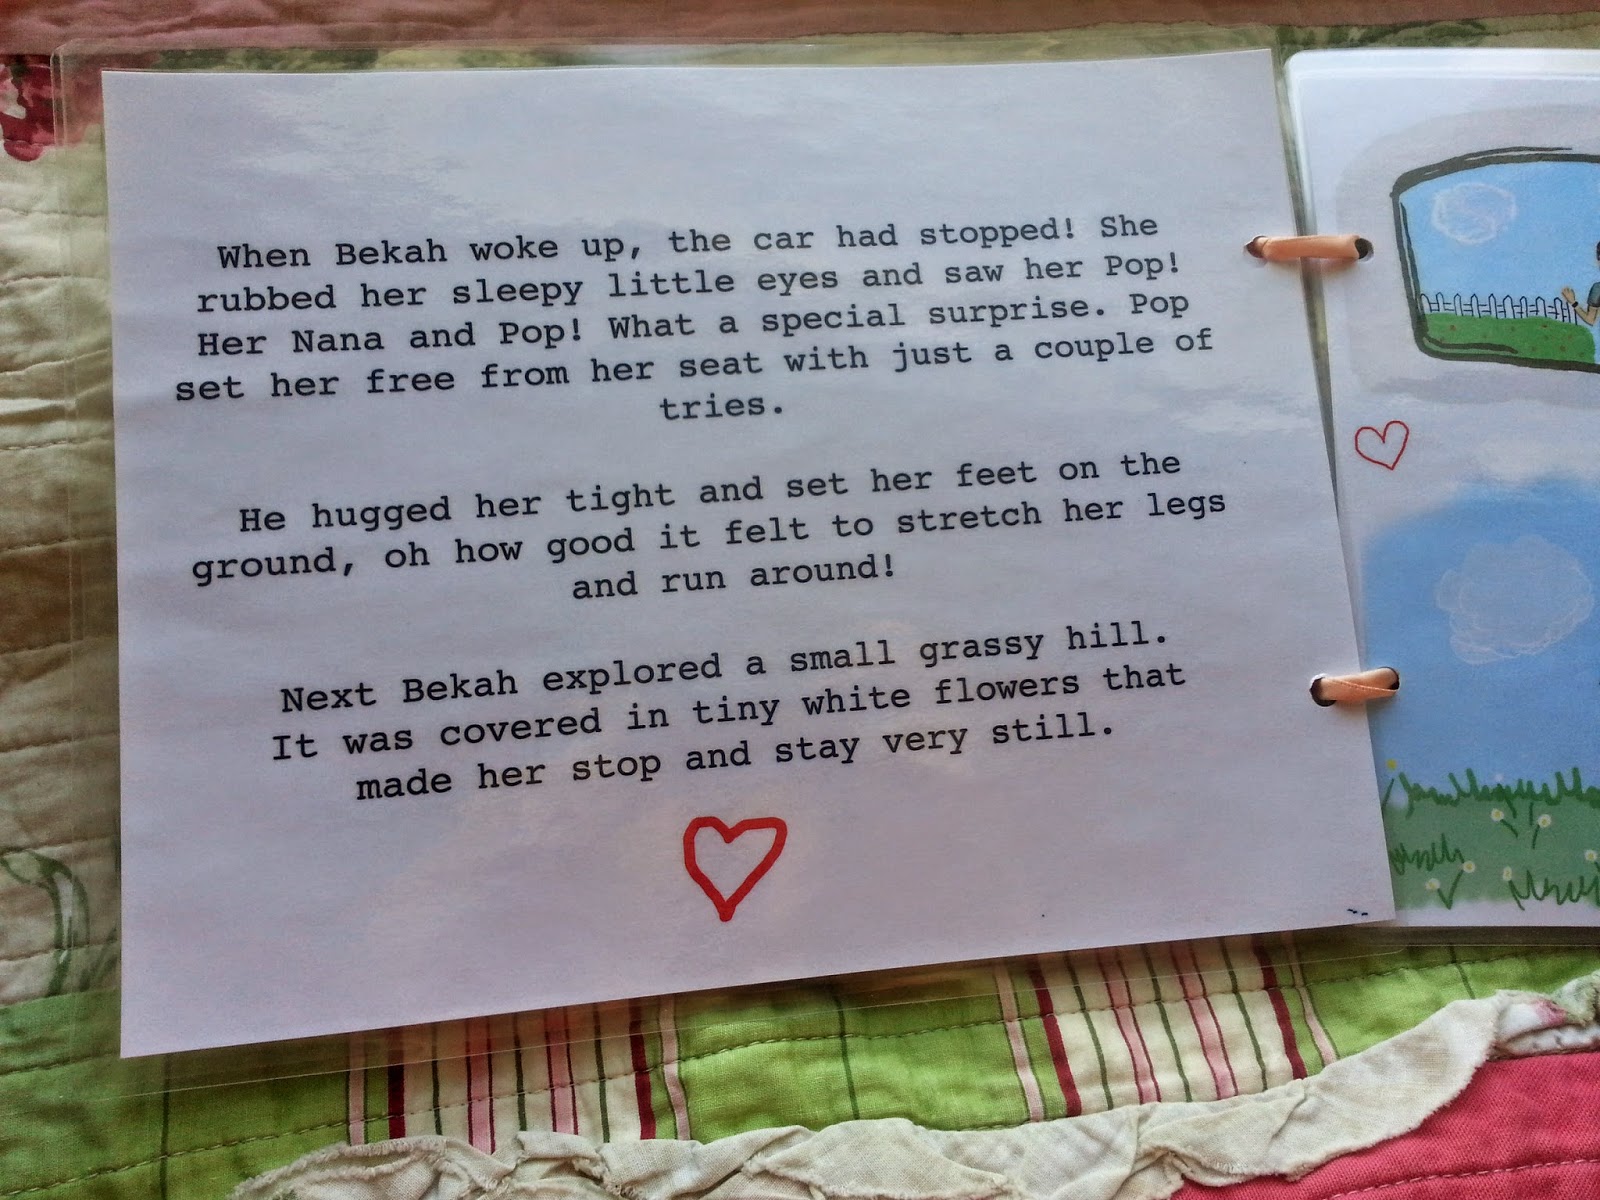 When Bekah woke up, the car had stopped! She
rubbed her sleepy little eyes and saw her Pop!
Her Nana and Pop! What a special surprise. Pop
set her free from her seat with just a couple of
tries.
He hugged her tight and set her feet on the
ground, oh how good it felt to stretch her legs
and run around!
Next Bekah explored a small grassy hill.
It was covered in tiny white flowers that
made her stop and stay very still.